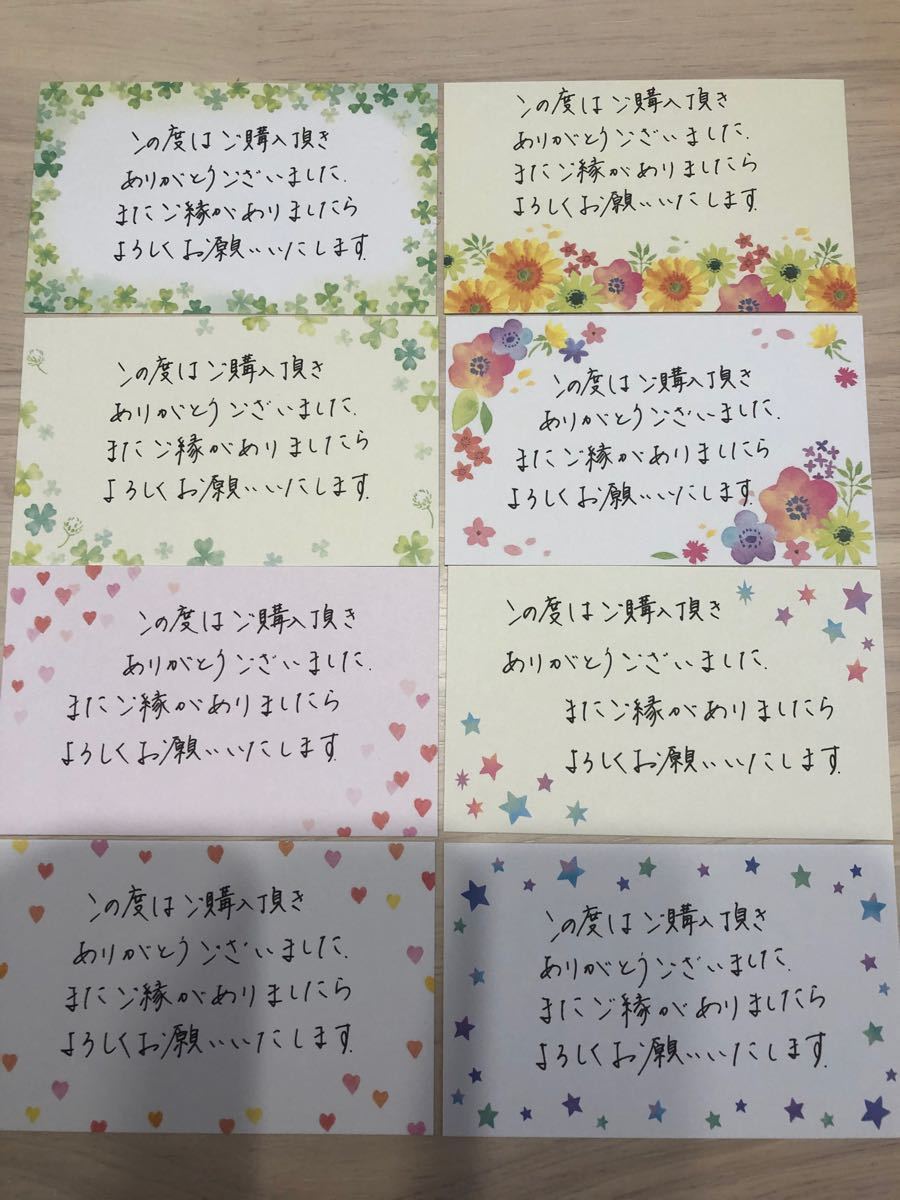 この度はご購入頂き
ありがとうございました.
またご縁がありましたら
よろしくお願いいたします.
この度はご購入頂き
ありがとうございました.
またご縁がありましたら
よろしくお願いいたします.
この度はご購入頂き
ありがとうございました.
またご縁がありましたら
よろしくお願いいたします.
この度はご購入頂き
ありがとうございました.
またご縁がありましたら
よろしくお願いいたします.
この度はご購入頂き
ありがとうございました.
またご縁がありましたら
よろしくお願いいたします.
この度はご購入頂き
ありがとうございました.
またご縁がありましたら
よろしくお願いいたします.
この度はご購入頂き
ありがとうございました.
またご縁がありましたら
よろしくお願いいたします.
この度はご購入頂き
ありがとうございました.
またご縁がありましたら
よろしくお願いいたします.